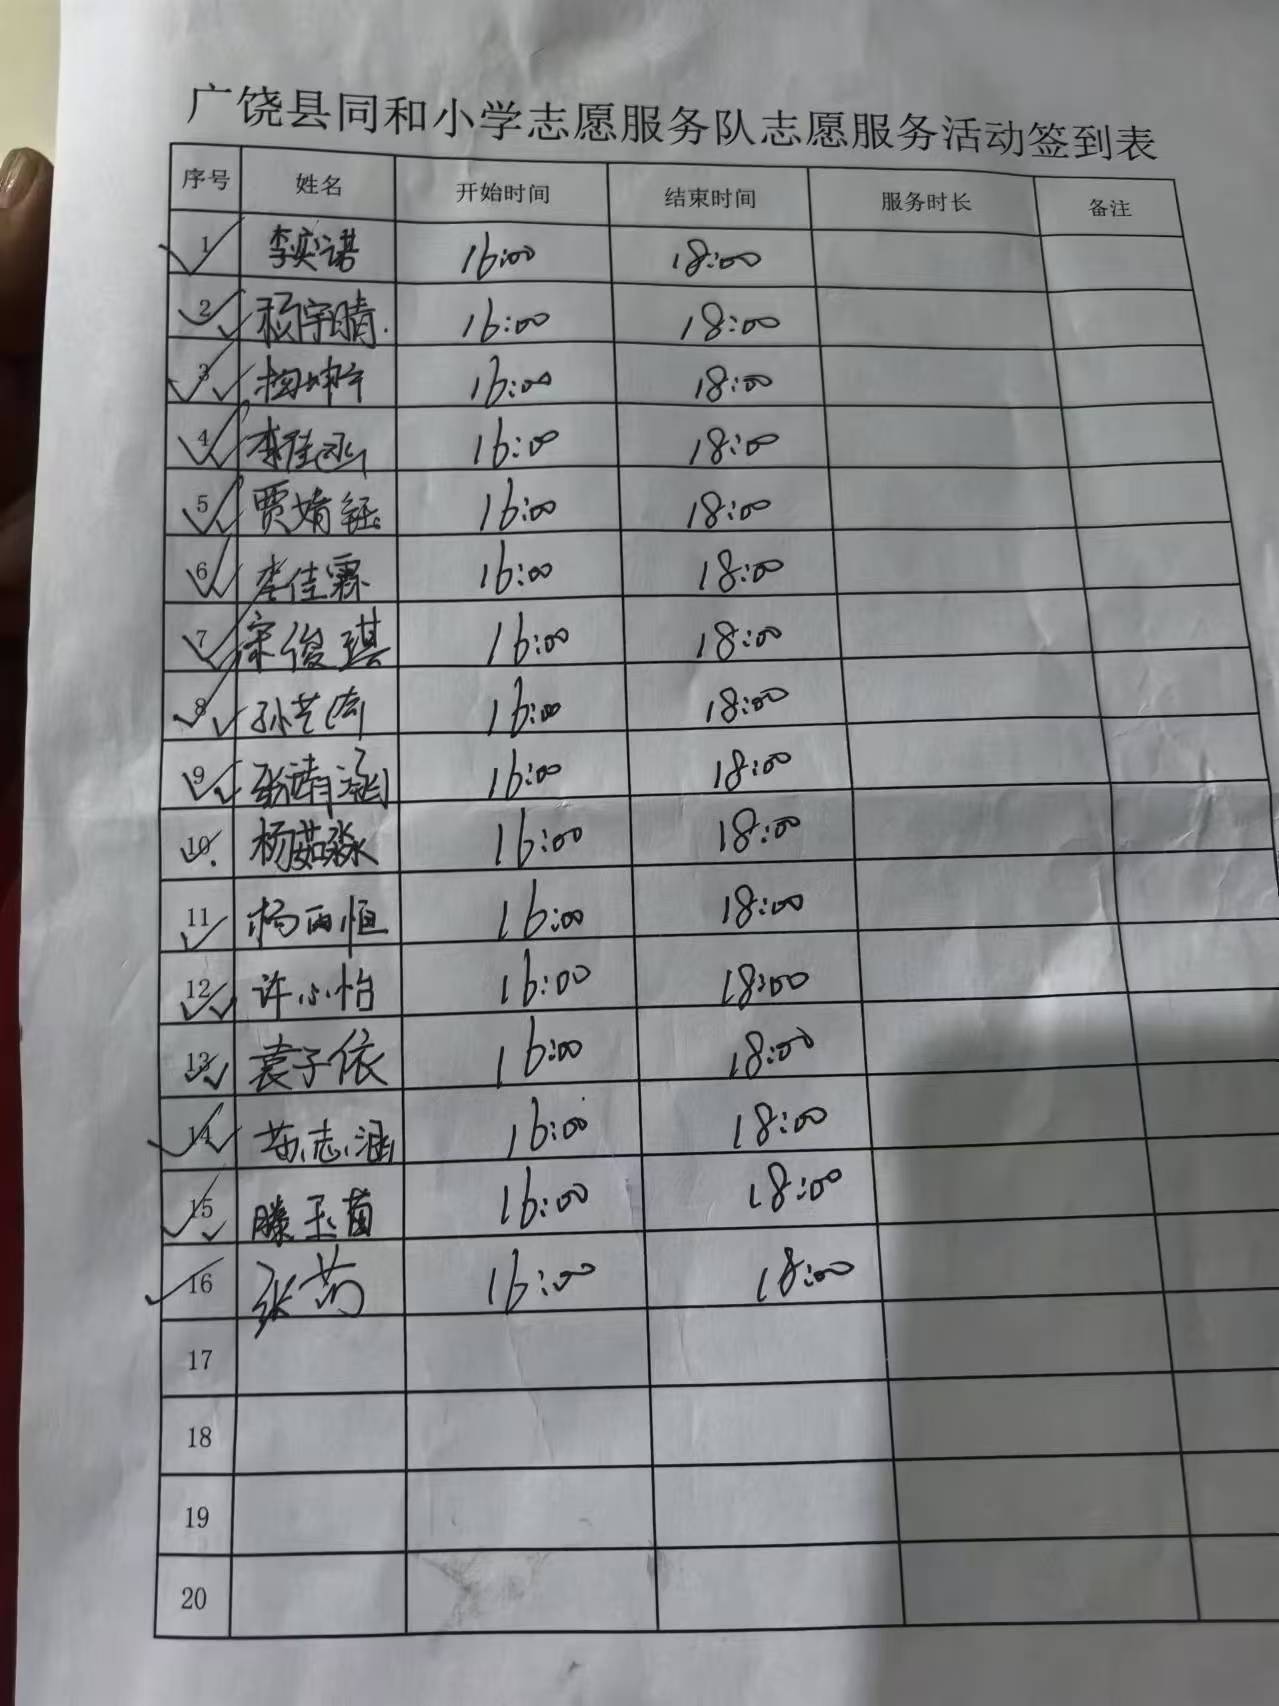 广饶县同和小学志愿服务队志愿服务活动签到表
序号 姓名 开始时间 结束时间 服务时长 备注
1 李奕诺 16:00 18:00
2 杨宇晴 16:00 18:00
3 16:00 18:00
4 李佳 16:00 18:00
5 贾婧钰 16:00 18:00
6 李佳霖 16:00 18:00
7 宋俊琪 16:00 18:00
8 孙艺 16:00 18:00
9 张靖涵 16:00 18:00
10 杨茹淼 16:00 18:00
11 杨雨恒 16:00 18:00
12 许小怡 16:00 18:00
13 袁子依 16:00 18:00
14 志涵 16:00 18:00
15 滕玉茵 16:00 18:00
16 张 16:00 18:00
17
18
19
20